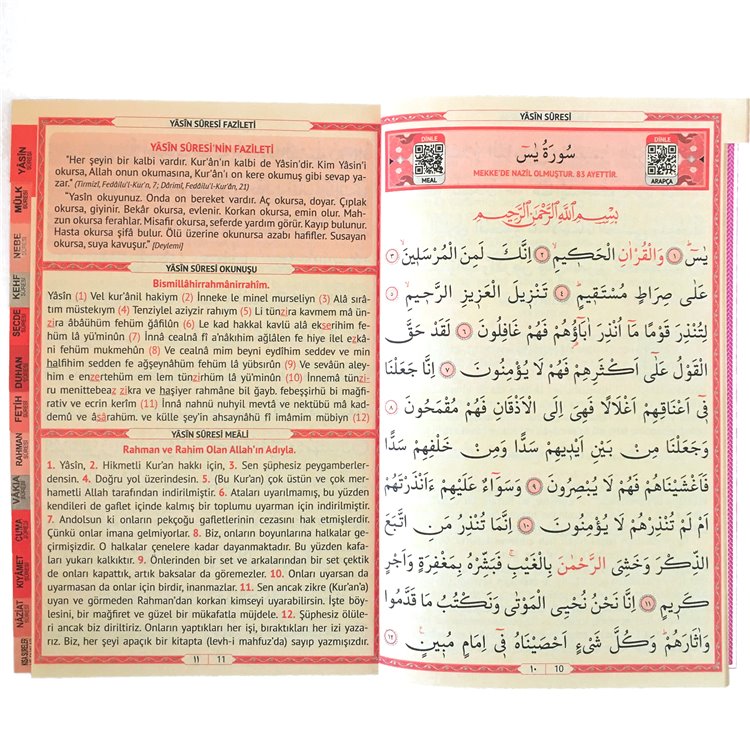 YÂSİN SÛRESİ
DİNLE
MEAL
سُورَةُ يٰسٓ
MEKKE'DE NAZİL OLMUŞTUR. 83 AYETTİR.
DİNLE
ARAPÇA
بِسْمِ اللّٰهِ الرَّحْمٰنِ الرَّحٖيمِ
يٰسٓ ﴿١﴾ وَالْقُرْاٰنِ الْحَكٖيمِ ﴿٢﴾ اِنَّكَ لَمِنَ الْمُرْسَلٖينَ ﴿٣﴾
عَلٰى صِرَاطٍ مُسْتَقٖيمٍ ﴿٤﴾ تَنْزٖيلَ الْعَزٖيزِ الرَّحٖيمِ ﴿٥﴾
لِتُنْذِرَ قَوْمًا مَٓا اُنْذِرَ اٰبَٓاؤُهُمْ فَهُمْ غَافِلُونَ ﴿٦﴾ لَقَدْ حَقَّ
الْقَوْلُ عَلٰٓى اَكْثَرِهِمْ فَهُمْ لَا يُؤْمِنُونَ ﴿٧﴾ اِنَّا جَعَلْنَا
فٖٓى اَعْنَاقِهِمْ اَغْلَالًا فَهِىَ اِلَى الْاَذْقَانِ فَهُمْ مُقْمَحُونَ ﴿٨﴾
وَجَعَلْنَا مِنْ بَيْنِ اَيْدٖيهِمْ سَدًّا وَمِنْ خَلْفِهِمْ سَدًّا
فَاَغْشَيْنَاهُمْ فَهُمْ لَا يُبْصِرُونَ ﴿٩﴾ وَسَوَٓاءٌ عَلَيْهِمْ ءَاَنْذَرْتَهُمْ
اَمْ لَمْ تُنْذِرْهُمْ لَا يُؤْمِنُونَ ﴿١٠﴾ اِنَّمَا تُنْذِرُ مَنِ اتَّبَعَ
الذِّكْرَ وَخَشِىَ الرَّحْمٰنَ بِالْغَيْبِ فَبَشِّرْهُ بِمَغْفِرَةٍ وَاَجْرٍ
كَرٖيمٍ ﴿١١﴾ اِنَّا نَحْنُ نُحْيِى الْمَوْتٰى وَنَكْتُبُ مَا قَدَّمُوا
وَاٰثَارَهُمْ وَكُلَّ شَىْءٍ اَحْصَيْنَاهُ فٖٓى اِمَامٍ مُبٖينٍ ﴿١٢﴾
١٠ 10
YÂSİN SÛRESİ FAZİLETİ
YÂSİN SÛRESİ'NİN FAZİLETİ
"Her şeyin bir kalbi vardır. Kur'ân'ın kalbi de Yasin'dir. Kim Yâsin'i
okursa, Allah onun okumasına, Kur'ân'ı on kere okumuş gibi sevap ya-
zar." (Tirmizî, Fedâilu'l-Kur'n, 7; Dârimî, Fedâilu'l-Kur'ân, 21)
"Yasin okuyunuz. Onda on bereket vardır. Aç okursa, doyar. Çıplak
okursa, giyinir. Bekâr okursa, evlenir. Korkan okursa, emin olur. Mah-
zun okursa ferahlar. Misafir okursa, seferde yardım görür. Kayıp bulunur.
Hasta okursa şifâ bulur. Ölü üzerine okunursa azabı hafifler. Susayan
okursa, suya kavuşur." [Deylemî]
YÂSİN SÛRESİ OKUNUŞU
Bismillâhirrahmânirrahîm.
Yâsîn (1) Vel kur'ânil hakiym (2) İnneke le minel murseliyn (3) Alâ sırâ-
tım müstekıym (4) Tenziylel aziyzir rahıym (5) Li tünzira kavmem mâ ün-
zira âbâühüm fehüm ğâfilûn (6) Le kad hakkal kavlü alâ ekserihim fe-
hüm lâ yü'minûn (7) İnnâ cealnâ fî a'nâkıhim ağlâlen fe hiye ilel ezkâ-
ni fehüm mukmehûn (8) Ve cealnâ mim beyni eydîhim seddev ve min
halfihim sedden fe ağşeynâhüm fehüm lâ yübsırûn (9) Ve sevâün aley-
him e enzertehüm em lem tünzirhüm lâ yü'minûn (10) İnnemâ tünzi-
ru menittebeaz zikra ve haşiyer rahmâne bil ğayb. febeşşirhü bi mağfi-
rativ ve ecrin kerîm (11) İnnâ nahnü nuhyil mevtâ ve nektübü mâ kad-
demû ve âsârahüm. ve külle şey'in ahsaynâhü fî imâmim mübiyn (12)
YÂSİN SÛRESİ MEÂLİ
Rahman ve Rahim Olan Allah'ın Adıyla.
1. Yâsîn, 2. Hikmetli Kur'an hakkı için, 3. Sen şüphesiz peygamberler-
densin. 4. Doğru yol üzerindesin. 5. (Bu Kur'an) çok üstün ve çok mer-
hametli Allah tarafından indirilmiştir. 6. Ataları uyarılmamış, bu yüzden
kendileri de gaflet içinde kalmış bir toplumu uyarman için indirilmiştir.
7. Andolsun ki onların pekçoğu gafletlerinin cezasını hak etmişlerdir.
Çünkü onlar imana gelmiyorlar. 8. Biz, onların boyunlarına halkalar ge-
çirmişizdir. O halkalar çenelere kadar dayanmaktadır. Bu yüzden kafa-
ları yukarı kalkıktır. 9. Önlerinden bir set ve arkalarından bir set çektik
de onları kapattık, artık baksalar da göremezler. 10. Onları uyarsan da
uyarmasan da onlar için birdir, inanmazlar. 11. Sen ancak zikre (Kur'an'a)
uyan ve görmeden Rahman'dan korkan kimseyi uyarabilirsin. İşte böy-
lesini, bir mağfiret ve güzel bir mükafatla müjdele. 12. Şüphesiz ölüle-
ri ancak biz diriltiriz. Onların yaptıkları her işi, bıraktıkları her izi yaza-
rız. Biz, her şeyi apaçık bir kitapta (levh-i mahfuz'da) sayıp yazmışızdır.
١١ 11
YÂSİN SÛRESİ
MÜLK SÛRESİ
NEBE SÛRESİ
KEHF SÛRESİ
SECDE SÛRESİ
DUHAN SÛRESİ
FETİH SÛRESİ
RAHMAN SÛRESİ
VÂKIA SÛRESİ
CUMA SÛRESİ
KIYÂMET SÛRESİ
NÂZİÂT SÛRESİ
KISA SÛRELER